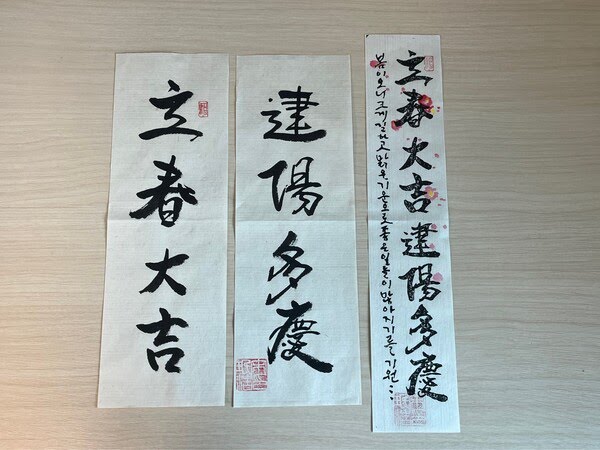 立春大吉
建陽多慶
立春大吉建陽多慶
봄이오니 크게길하고 밝은기운으로 좋은일들이 많아지기를 기원...